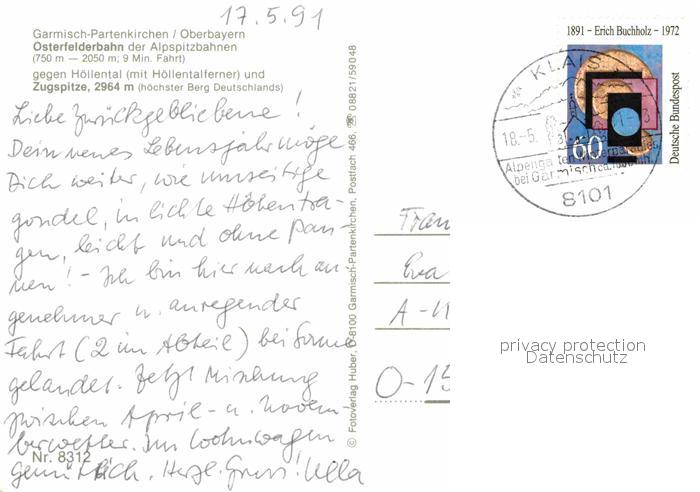 17.5.91
Garmisch-Partenkirchen / Oberbayern
Osterfelderbahn der Alpspitzbahnen
(750 m — 2050 m; 9 Min. Fahrt)
gegen Höllental (mit Höllentalferner) und
Zugspitze, 2964 m (höchster Berg Deutschlands)
Liebe Zurückgebliebene!
Dein neues Lebensjahr möge
Dich weiter, wie umseitige
gondel, in lichte Höhen tra-
gen, leicht und ohne Pan-
nen! - Ich bin hier nach an-
genehmer u. anregender
Fahrt (2 im Abteil) bei Sonne
gelandet. Jetzt Mischung
zwischen April- u. Novem-
berwetter. Im Wohnwagen
gemütlich. Herzl. Gruss! Ulla
Nr. 8312
© Fotoverlag Huber, D-8100 Garmisch-Partenkirchen, Postfach 466, ☎ 08821/59048
1891 – Erich Buchholz – 1972
Deutsche Bundespost
60
KLAIS
18.-5.
bei Garmisch
8101
Frau
Eva
O-15
privacy protection
Datenschutz